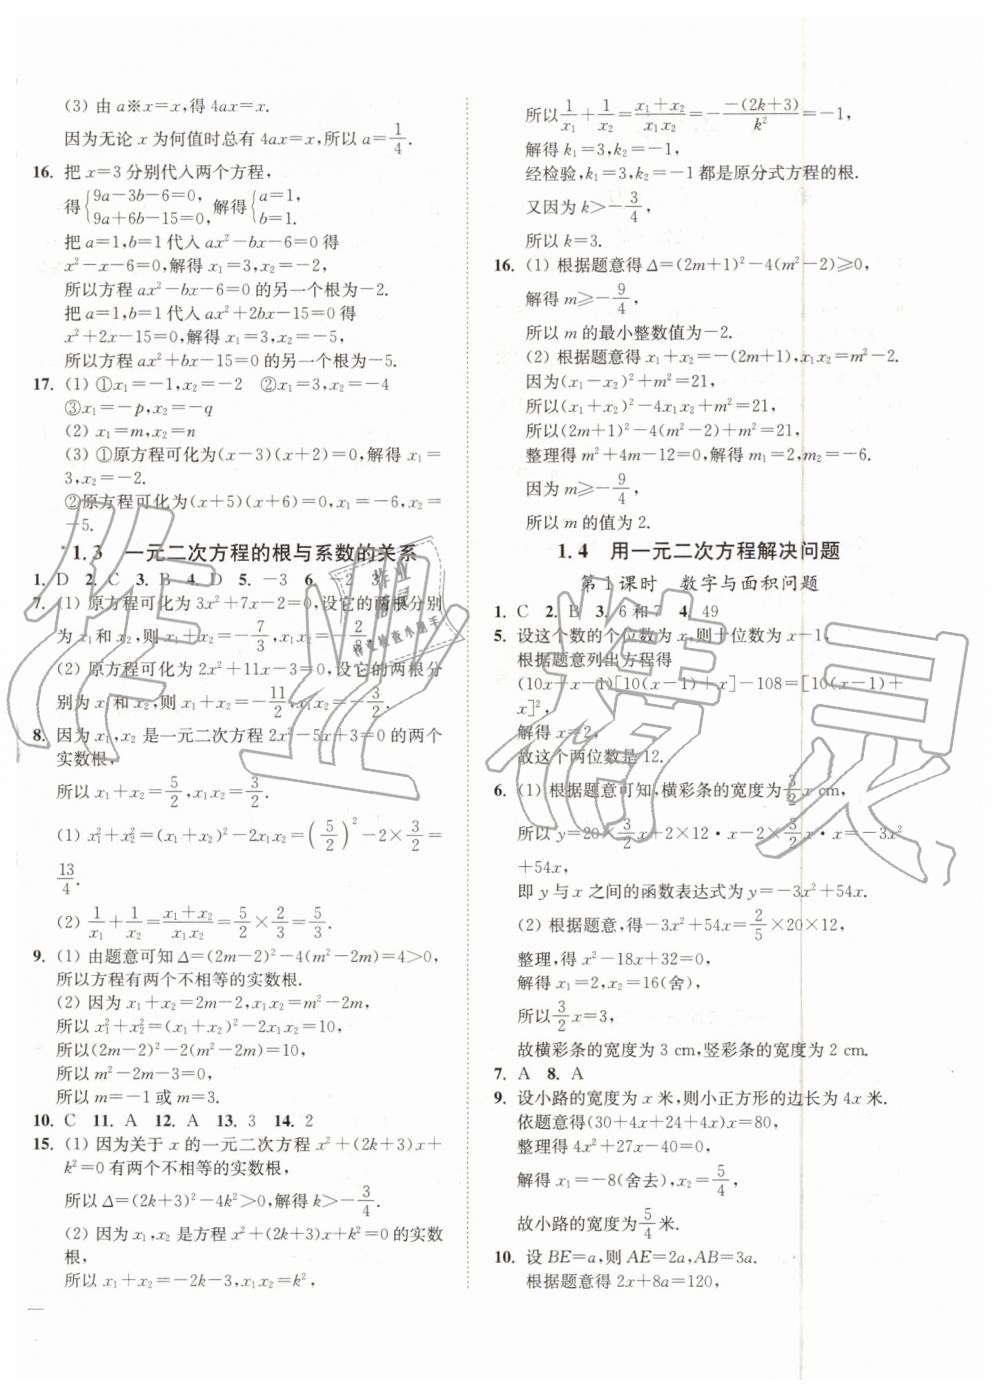 (3) 由 a※x=x,得 4ax=x.
因为无论 x 为何值时总有 4ax=x,所以 a=1/4.
16. 把 x=3 分别代入两个方程,
得{9a-3b-6=0, 9a+6b-15=0, 解得{a=1, b=1.
把 a=1,b=1 代入 ax²-bx-6=0 得
x²-x-6=0,解得 x₁=3,x₂=-2,
所以方程 ax²-bx-6=0 的另一个根为-2.
把 a=1,b=1 代入 ax²+2bx-15=0 得
x²+2x-15=0,解得 x₁=3,x₂=-5,
所以方程 ax²+bx-15=0 的另一个根为-5.
17. (1) ①x₁=-1,x₂=-2 ②x₁=3,x₂=-4
③x₁=-p,x₂=-q
(2) x₁=m,x₂=n
(3) ①原方程可化为(x-3)(x+2)=0,解得 x₁=
3,x₂=-2.
②原方程可化为(x+5)(x+6)=0,x₁=-6,x₂=
-5.
1.3 一元二次方程的根与系数的关系
1. D 2. C 3. B 4. D 5. -3 6. -2 3
7. (1) 原方程可化为 3x²+7x-2=0,设它的两根分别
为 x₁和 x₂,则 x₁+x₂=-7/3,x₁x₂=-2/3.
(2) 原方程可化为 2x²+11x-3=0,设它的两根分
别为 x₁和 x₂,则 x₁+x₂=-11/2,x₁x₂=-3/2.
8. 因为 x₁,x₂ 是一元二次方程 2x²-5x+3=0 的两个
实数根,
所以 x₁+x₂=5/2,x₁x₂=3/2.
(1) x₁²+x₂²=(x₁+x₂)²-2x₁x₂=(5/2)²-2×3/2=
13/4.
(2) 1/x₁+1/x₂=(x₁+x₂)/(x₁x₂)=5/2×2/3=5/3.
9. (1) 由题意可知 Δ=(2m-2)²-4(m²-2m)=4>0,
所以方程有两个不相等的实数根.
(2) 因为 x₁+x₂=2m-2,x₁x₂=m²-2m,
所以 x₁²+x₂²=(x₁+x₂)²-2x₁x₂=10,
所以(2m-2)²-2(m²-2m)=10,
所以 m²-2m-3=0,
所以 m=-1 或 m=3.
10. C 11. A 12. A 13. 3 14. 2
15. (1) 因为关于 x 的一元二次方程 x²+(2k+3)x+
k²=0 有两个不相等的实数根,
所以 Δ=(2k+3)²-4k²>0,解得 k>-3/4.
(2) 因为 x₁,x₂ 是方程 x²+(2k+3)x+k²=0 的实数
根,
所以 x₁+x₂=-2k-3,x₁x₂=k²,
所以 1/x₁+1/x₂=(x₁+x₂)/(x₁x₂)=-(2k+3)/k²=-1,
解得 k₁=3,k₂=-1,
经检验,k₁=3,k₂=-1 都是原分式方程的根.
又因为 k>-3/4,
所以 k=3.
16. (1) 根据题意得 Δ=(2m+1)²-4(m²-2)≥0,
解得 m≥-9/4,
所以 m 的最小整数值为-2.
(2) 根据题意得 x₁+x₂=-(2m+1),x₁x₂=m²-2.
因为(x₁-x₂)²+m²=21,
所以(x₁+x₂)²-4x₁x₂+m²=21,
所以(2m+1)²-4(m²-2)+m²=21,
整理得 m²+4m-12=0,解得 m₁=2,m₂=-6.
因为 m≥-9/4,
所以 m 的值为 2.
1.4 用一元二次方程解决问题
第 1 课时 数字与面积问题
1. C 2. B 3. 6 和 7 4. 49
5. 设这个数的个位数为 x,则十位数为 x-1,
根据题意列出方程得
(10x-x-1)[10(x-1)+x]-108=[10(x-1)+
x]²,
解得 x=2,
故这个两位数是 12.
6. (1) 根据题意可知,横彩条的宽度为3/2 x cm,
所以 y=20×3/2x+2×12·x-2×3/2x·x=-3x²
+54x,
即 y 与 x 之间的函数表达式为 y=-3x²+54x.
(2) 根据题意,得-3x²+54x=2/5×20×12,
整理,得 x²-18x+32=0,
解得 x₁=2,x₂=16(舍),
所以3/2x=3,
故横彩条的宽度为 3 cm,竖彩条的宽度为 2 cm.
7. A 8. A
9. 设小路的宽度为 x 米,则小正方形的边长为 4x 米.
依题意得(30+4x+24+4x)x=80,
整理得 4x²+27x-40=0,
解得 x₁=-8(舍去),x₂=5/4,
故小路的宽度为5/4米.
10. 设 BE=a,则 AE=2a,AB=3a.
根据题意得 2x+8a=120,
作业精灵
作业
精灵